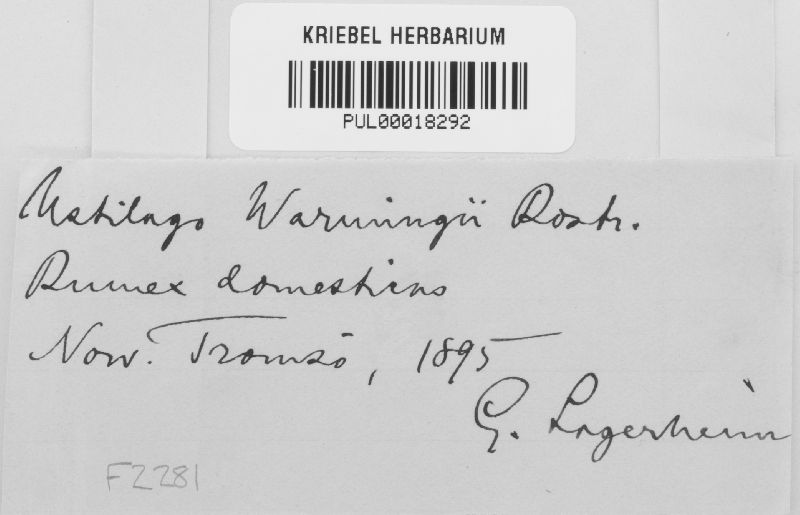 KRIEBEL HERBARIUM
PUL00018292
Ustilago Warmingii Rostr.
Rumex domesticus
Norv. Tromsö, 1895
G. Lagerheim
F2281